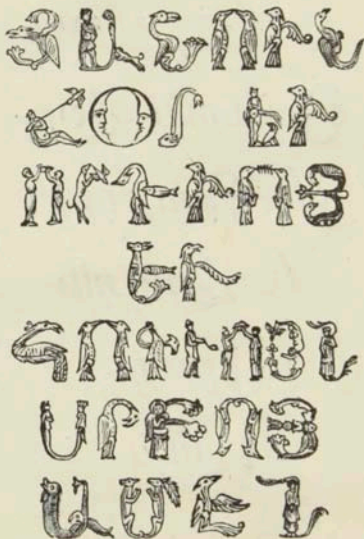 ՅԱՆՈՒՆ
ՀՕՐ ԵՒ
ՈՐԴՒՈՅ
ԵՒ
ՀՈԳՒՈՅՆ
ՍՐԲՈՅ
ԱՄԷՆ